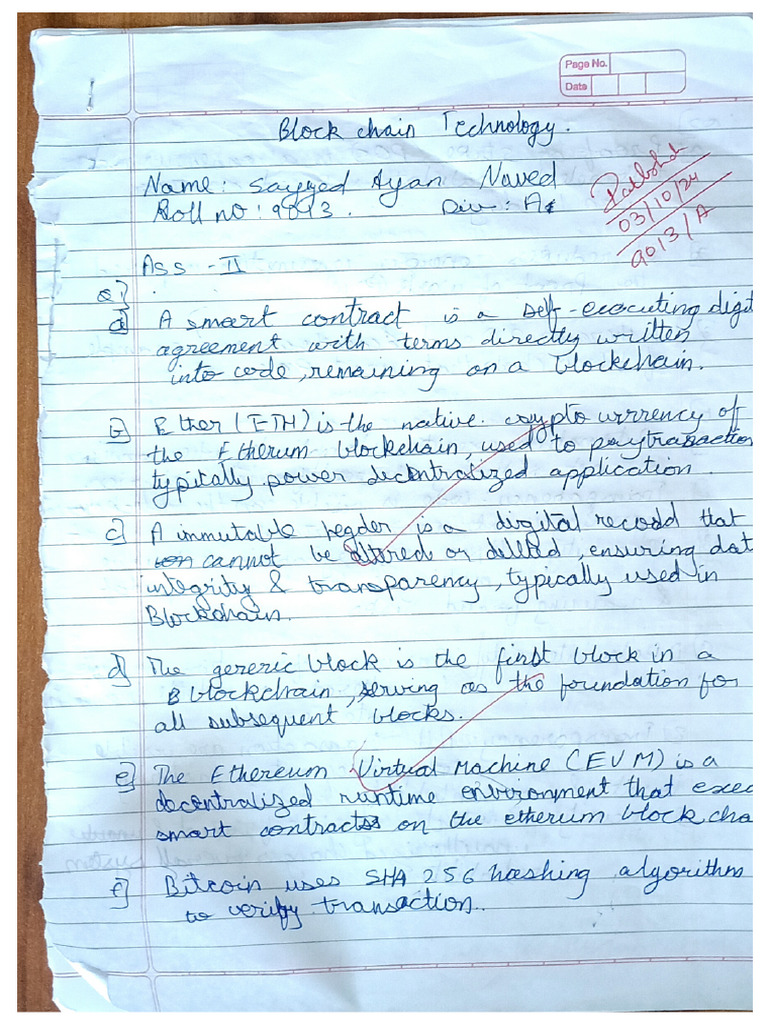 Page No.
Date
Block chain Technology.
Name: Sayyed Ayan Naved
Roll no: 9013. Div: A
03/10/24
9013/A
Ass - II
Q1]
a] A smart contract is a self-executing digit
agreement with terms directly written
into code, remaining on a blockchain.
b] Ether (ETH) is the native crypto currency of
the Etherum blockchain, used to pay transaction
typically power decentralized application.
c] A immutable legder is a digital record that
cannot be altered or delled, ensuring dat
integrity & transparency, typically used in
Blockchain.
d] The gereric block is the first block in a
blockchain, serving as the foundation for
all subsequent blocks.
e] The Ethereum Virtual Machine (EVM) is a
decentralized runtime environment that exec
smart contracts on the etherum block cha
f] Bitcoin uses SHA 256 hashing algorithm
to verify transaction.